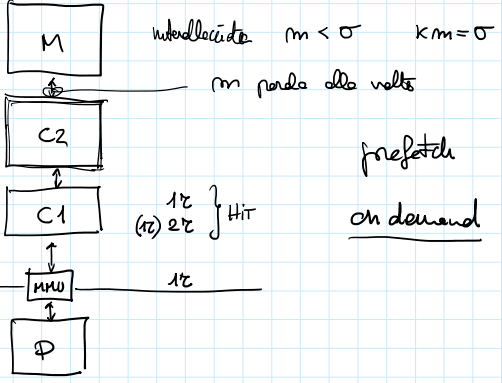 M
interallacciata m < σ km = σ
m parole alla volta
C2
prefetch
C1
1τ
(1τ) 2τ } HIT
on demand
MMU
1τ
P